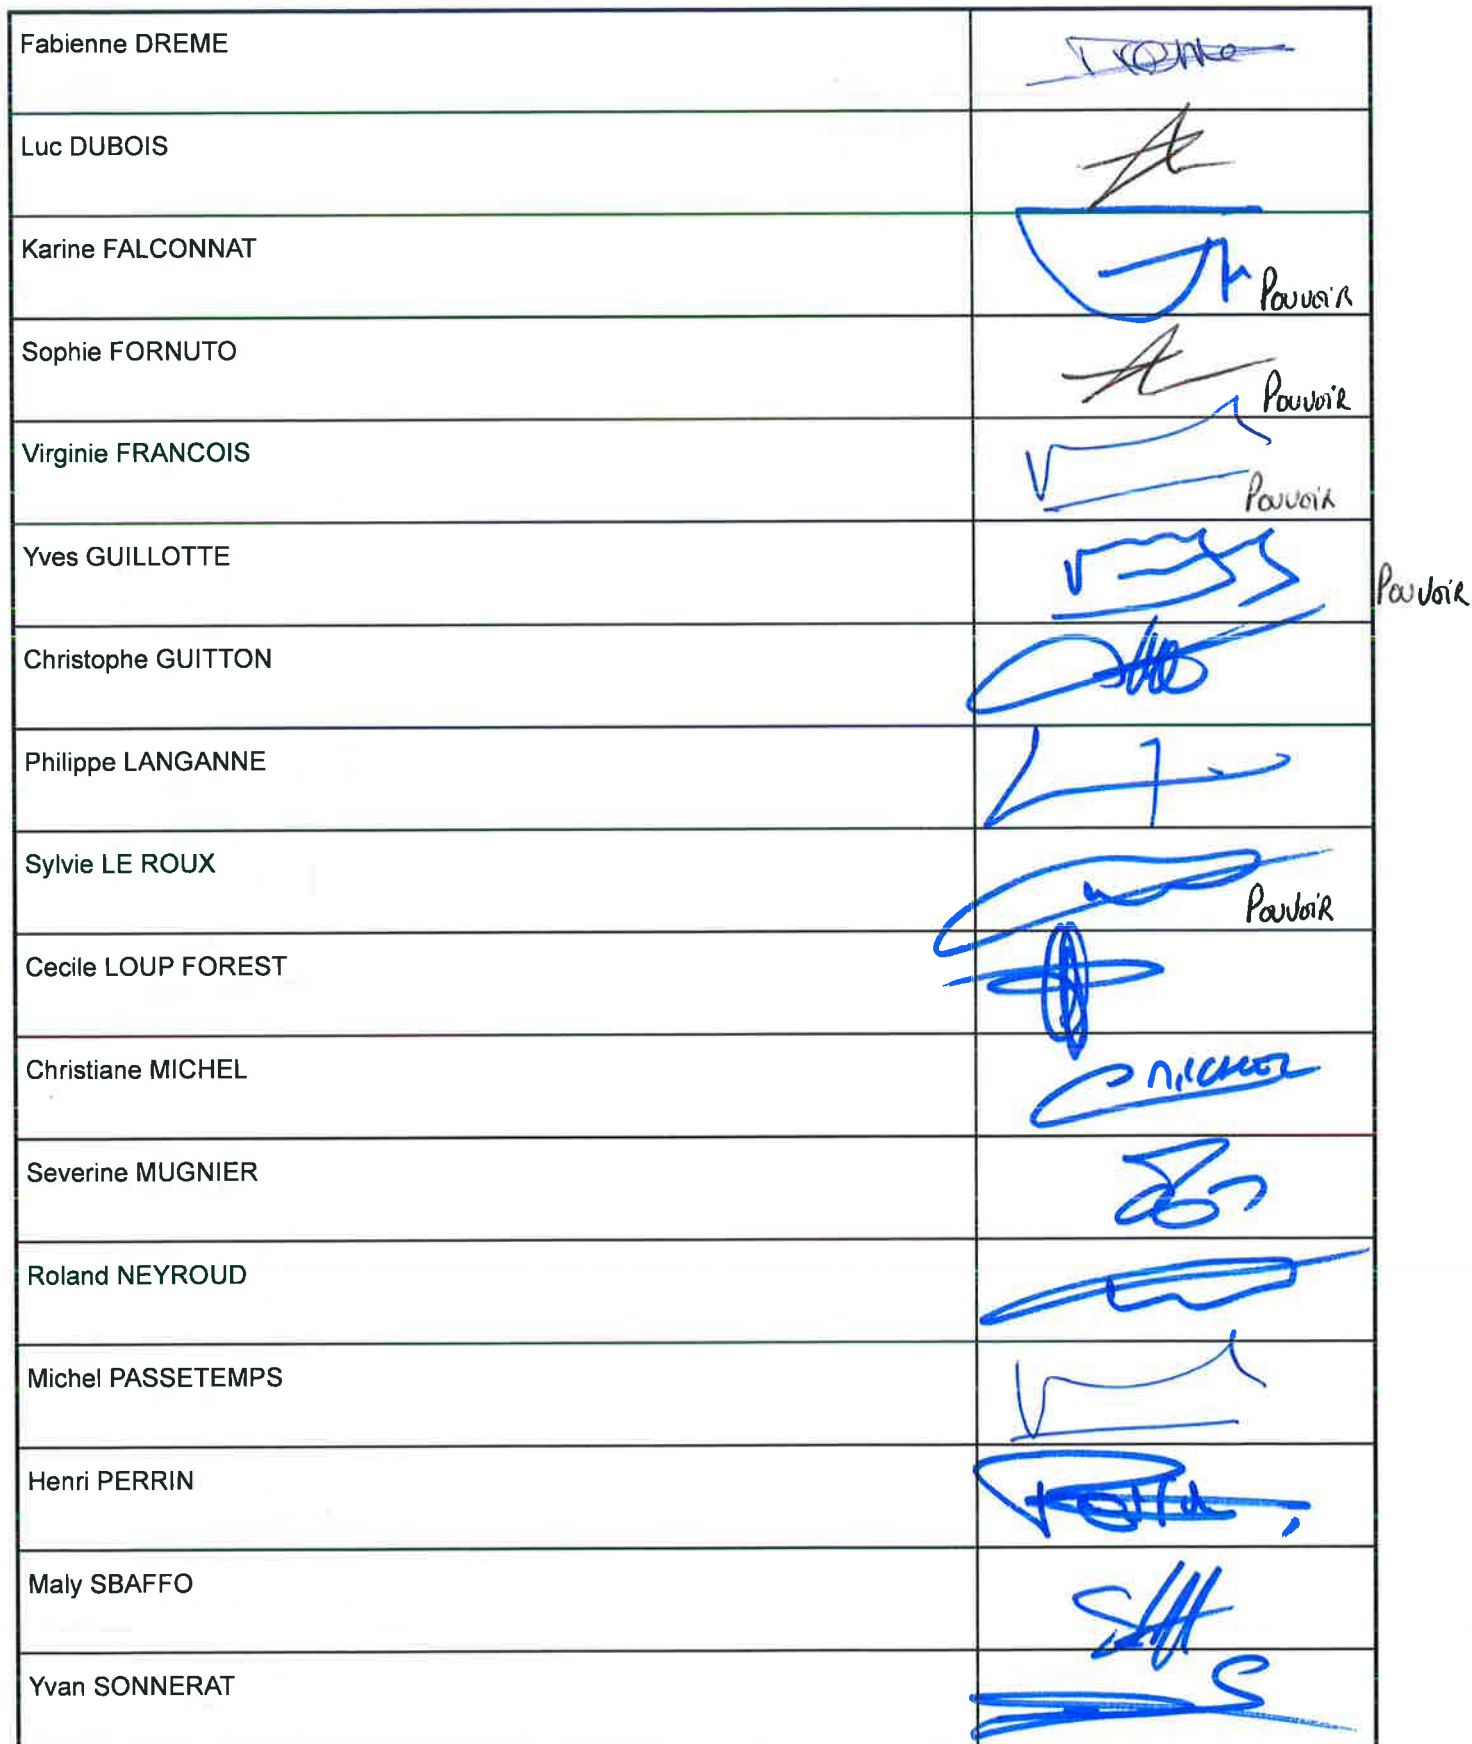 Fabienne DREME
Luc DUBOIS
Karine FALCONNAT
Pouvoir
Sophie FORNUTO
Pouvoir
Virginie FRANCOIS
Pouvoir
Yves GUILLOTTE
Pouvoir
Christophe GUITTON
Philippe LANGANNE
Sylvie LE ROUX
Pouvoir
Cecile LOUP FOREST
Christiane MICHEL
C MICHEL
Severine MUGNIER
Roland NEYROUD
Michel PASSETEMPS
Henri PERRIN
Maly SBAFFO
Yvan SONNERAT